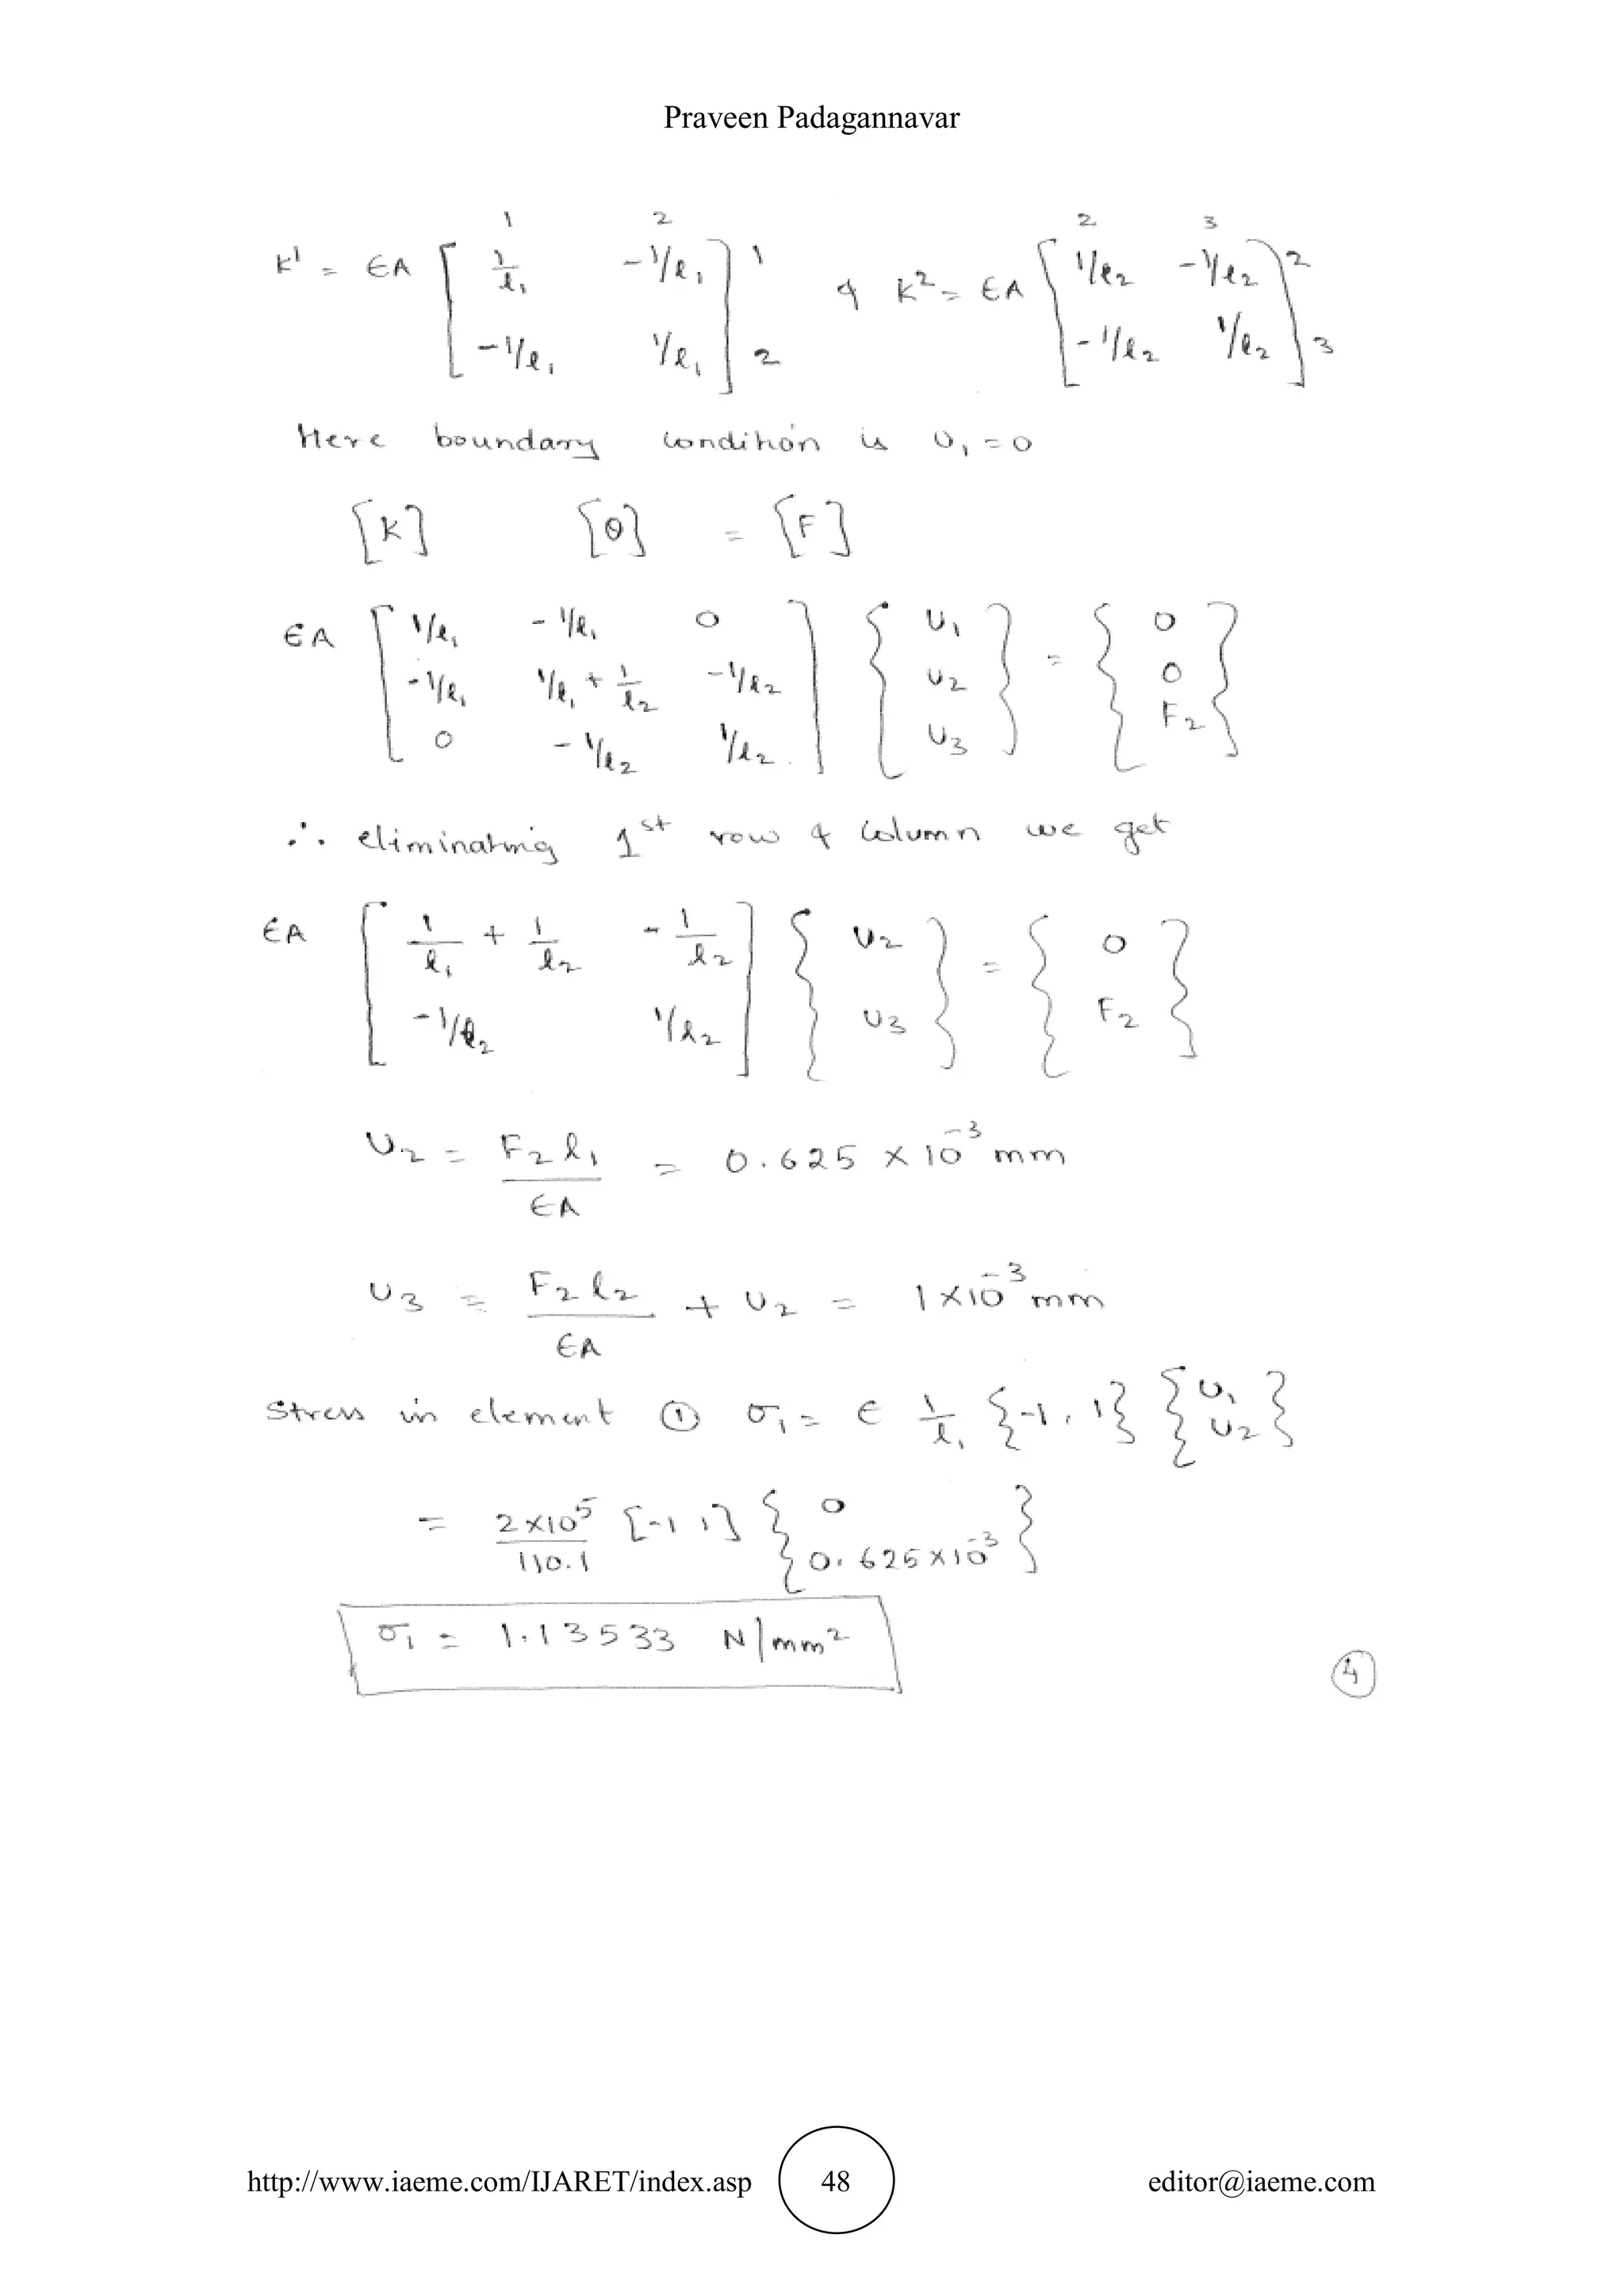 Praveen Padagannavar
1 2 2 3
K¹ = EA [ 1/l₁ -1/l₁ ] 1 & K² = EA [ 1/l₂ -1/l₂ ] 2
[ -1/l₁ 1/l₁ ] 2 [ -1/l₂ 1/l₂ ] 3
Here boundary condition is U₁ = 0
[K] [θ] = [F]
EA [ 1/l₁ -1/l₁ 0 ] { U₁ } = { 0 }
[ -1/l₁ 1/l₁ + 1/l₂ -1/l₂ ] { U₂ } { 0 }
[ 0 -1/l₂ 1/l₂ ] { U₃ } { F₂ }
∴ eliminating 1st row & column we get
EA [ 1/l₁ + 1/l₂ -1/l₂ ] { U₂ } = { 0 }
[ -1/l₂ 1/l₂ ] { U₃ } { F₂ }
U₂ = F₂ l₁ / EA = 0.625 × 10⁻³ mm
U₃ = F₂ l₂ / EA + U₂ = 1×10⁻³ mm
Stress in element ① σ₁ = E 1/l₁ {-1, 1} { U₁ U₂ }
= 2×10⁵ / 110.1 [-1 1] { 0 0.625×10⁻³ }
σ₁ = 1.13533 N/mm²
④
http://www.iaeme.com/IJARET/index.asp 48 editor@iaeme.com